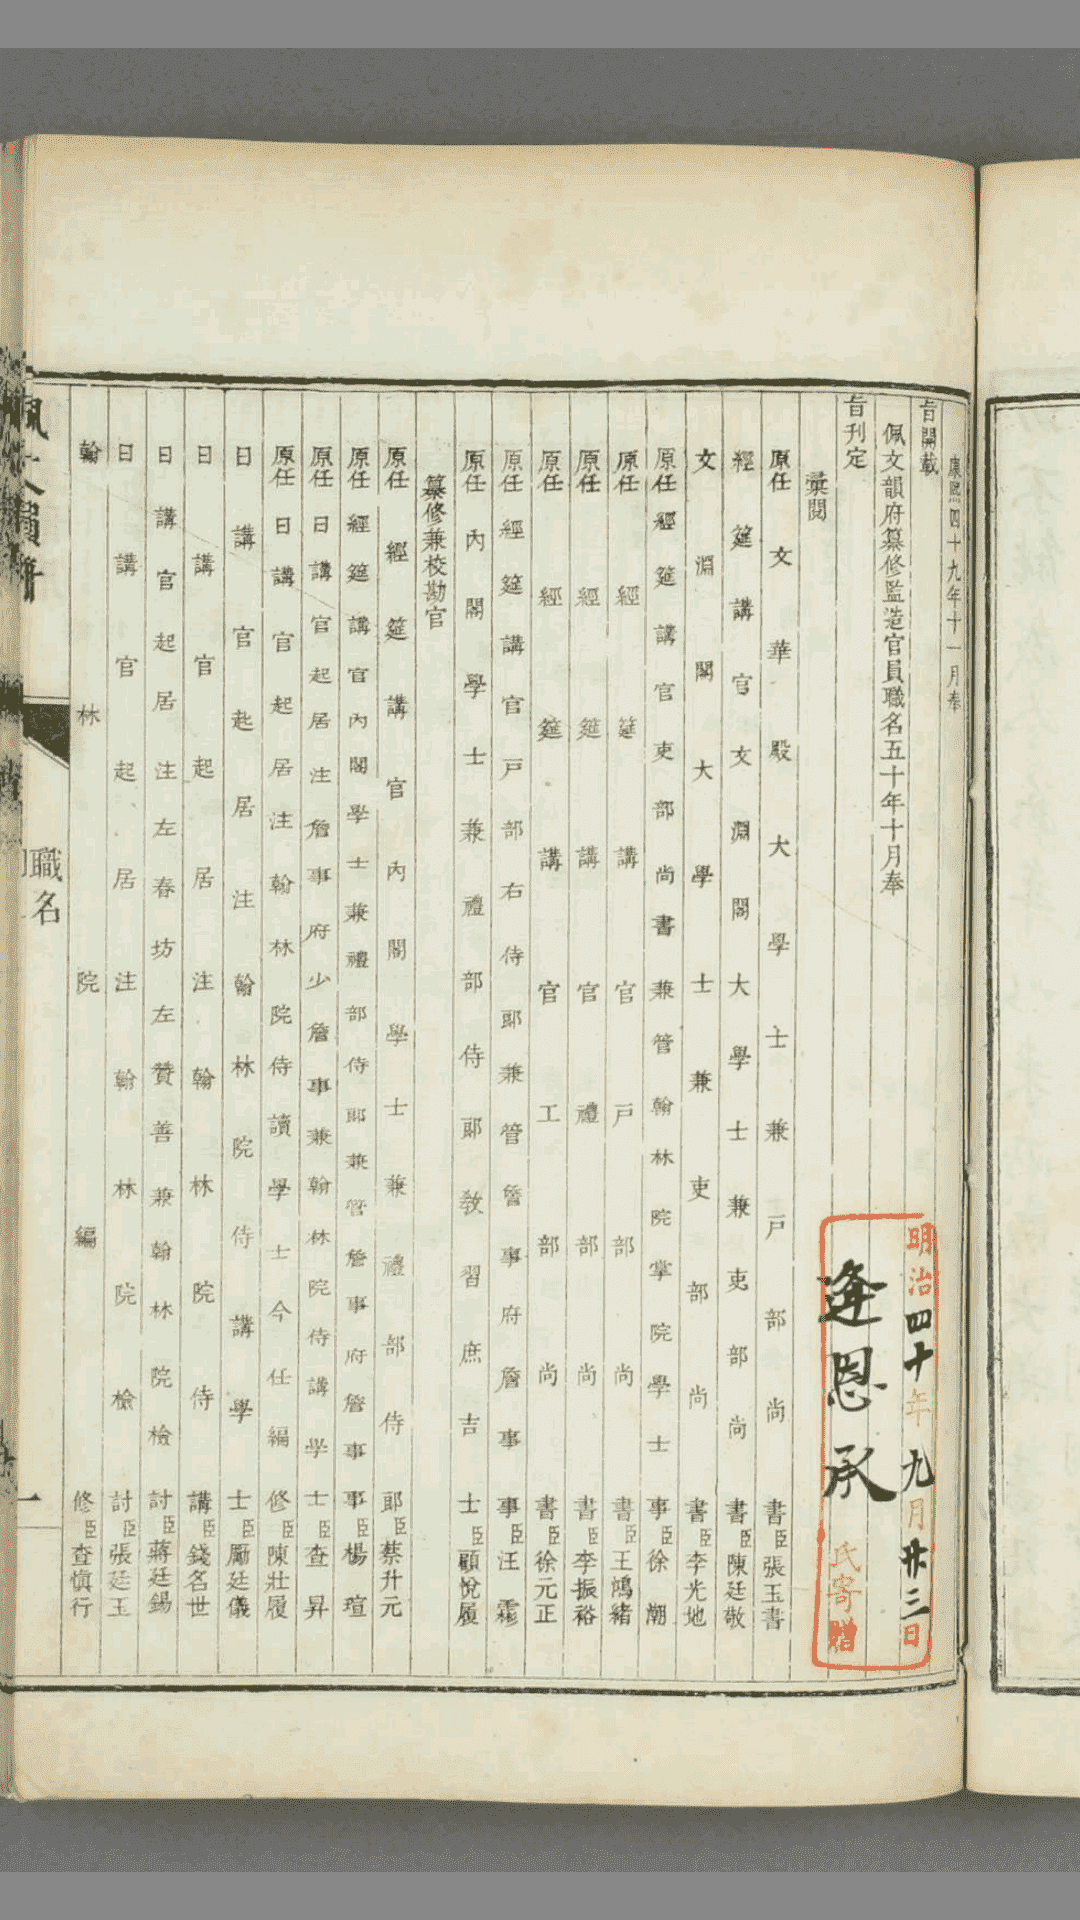 康熙四十九年十一月奉
旨開載
佩文韻府纂修監造官員職名五十年十月奉
旨刊定
彙閱
原任文華殿大學士兼戶部尚書臣張玉書
經筵講官文淵閣大學士兼吏部尚書臣陳廷敬
文淵閣大學士兼吏部尚書臣李光地
原任經筵講官吏部尚書兼管翰林院掌院學士事臣徐潮
原任經筵講官戶部尚書臣王鴻緒
原任經筵講官禮部尚書臣李振裕
原任經筵講官工部尚書臣徐元正
原任經筵講官戶部右侍郎兼管詹事府詹事事臣汪霦
原任內閣學士兼禮部侍郎教習庶吉士臣顧悅履
纂修兼校勘官
原任經筵講官內閣學士兼禮部侍郎臣蔡升元
原任經筵講官內閣學士兼禮部侍郎兼管詹事府詹事事臣楊瑄
原任日講官起居注詹事府少詹事兼翰林院侍講學士臣查昇
原任日講官起居注翰林院侍讀學士今任編修臣陳壯履
日講官起居注翰林院侍講學士臣勵廷儀
日講官起居注翰林院侍講臣錢名世
日講官起居注左春坊左贊善兼翰林院檢討臣蔣廷錫
日講官起居注翰林院檢討臣張廷玉
翰林院編修臣查慎行
職名
一
明治四十年九月廿三日
逄恩承
氏寄贈